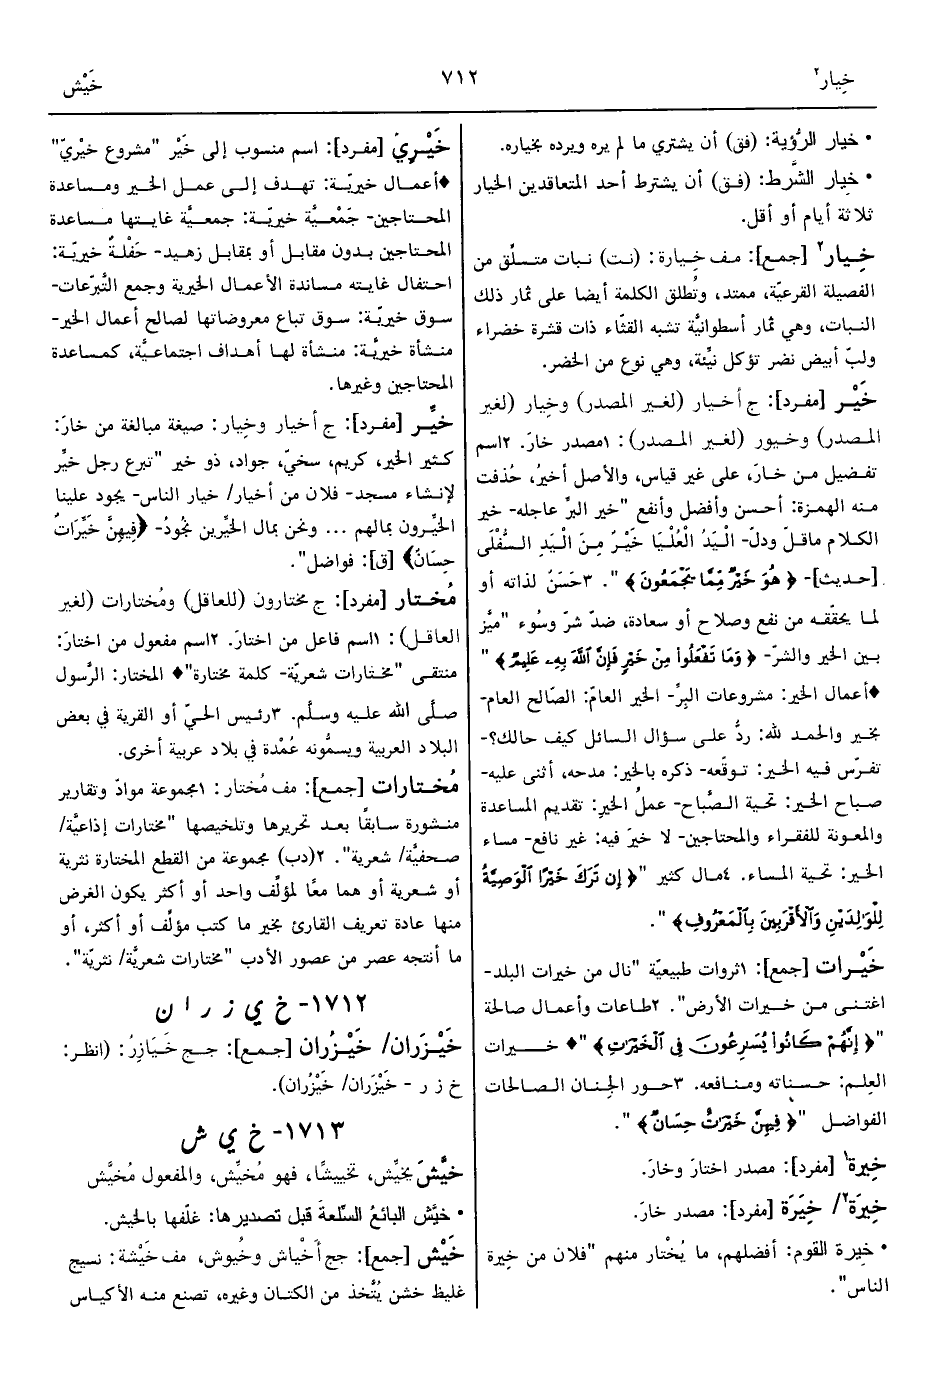 خِيار٢
٧١٢
خَيْش
• خيار الرُّؤية: (فق) أن يشتري ما لم يره ويرده بخياره.
• خيار الشَّرط: (فـق) أن يشـترط أحد المتعاقدين الخيار
ثلاثة أيام أو أقل.
خِـيار٢ [جمع]: مـف خِـيارة: (نـت) نبات متسلِّق من
الفصيلة القرعيَّة، ممتد، وتُطلق الكلمة أيضا على ثمار ذلك
النـبات، وهي ثمار أسطوانيَّة تشبه القثَّاء ذات قشرة خضراء
ولبّ أبيض نضر تؤكل نيِّئة، وهي نوع من الخضر.
خَيْـر [مفـرد]: ج أخـيار (لغـير المصدر) وخِيار (لغير
المصدر) وخـيور (لغـير المـصدر): ١مصدر خارَ. ٢اسم
تفـضيل مـن خـارَ، على غير قياس، والأصل أخيرُ، حُذفت
منه الهمزة: أحسن وأفضل وأنفع "خير البرِّ عاجله- خير
الكلام ماقـلّ ودلّ- الْـيَدُ الْعُلْـيَا خَيْـرٌ مِـنَ الْـيَدِ الـسُّفْلَى
[حديث]- ﴿هُوَ خَيْرٌ مِمَّا يَجْمَعُونَ﴾". ٣حَسَنٌ لذاته أو
لمـا يحقّقـه من نفع وصلاح أو سعادة، ضدّ شرّ وسُوء "ميَّز
بـين الخير والشرّ- ﴿وَمَا تَفْعَلُوا مِنْ خَيْرٍ فَإِنَّ اللَّهَ بِهِ عَلِيمٌ﴾"
♦أعمال الخير: مشروعات البرِّ- الخير العامّ: الصّالح العام-
بخـير والحمـد لله: ردُّ علـى سـؤال السـائل كيف حالك؟-
تفـرّس فـيه الخـير: تـوقّعه- ذكره بالخير: مدحه، أثنى عليه-
صـباح الخـير: تحيّة الـصَّباح- عملُ الخيرِ: تقديم المساعدة
والمعـونة للفقـراء والمحتاجـين- لا خيرَ فيه: غير نافع- مساء
الخـير: تحيّة المساء. ٤مـال كثير "﴿إِن تَرَكَ خَيْرًا الْوَصِيَّةُ
لِلْوَالِدَيْنِ وَالْأَقْرَبِينَ بِالْمَعْرُوفِ﴾".
خَيْـرات [جمع]: ١ثروات طبيعيّة "نال من خيرات البلد-
اغتنـى مـن خـيرات الأرض". ٢طـاعات وأعمـال صالحة
"﴿إِنَّهُمْ كَانُوا يُسَارِعُونَ فِي الْخَيْرَاتِ﴾"♦ خـيرات
العِلـم: حـسناته ومـنافعه. ٣حـور الجـنان الـصالحات
الفواضـل "﴿فِيهِنَّ خَيْرَاتٌ حِسَانٌ﴾".
خِيرة١ [مفرد]: مصدر اختارَ وخارَ.
خِيرَة٢/ خِيَرَة [مفرد]: مصدر خارَ.
• خِيرة القوم: أفضلهم، ما يُخْتار منهم "فلان من خِيرة
الناس".
خَيْـرِيّ [مفرد]: اسم منسوب إلى خَيْر "مشروع خيْريّ"
♦أعمـال خيريّـة: تهـدف إلـى عمـل الخـير ومـساعدة
المحـتاجين- جَمْعـيَّة خيريّـة: جمعـيَّة غايـتها مـساعدة
المحـتاجين بـدون مقابـل أو بمقابـل زهـيد- حَفْلةٌ خيريّة:
احـتفال غايـته مـساندة الأعمـال الخيرية وجمع التَّبرّعات-
سـوق خيريّـة: سـوق تباع معروضاتها لصالح أعمال الخير-
منـشأة خيريَّة: منشأة لهـا أهـداف اجتماعيَّة، كمـساعدة
المحتاجين وغيرها.
خيِّـر [مفـرد]: ج أخيار وخِيار: صيغة مبالغة من خارَ:
كثـير الخـير، كريم، سخيّ، جواد، ذو خير "تبرع رجل خيِّر
لإنـشاء مسجد- فلان من أخيار/ خيار الناس- يجود علينا
الخيِّـرون بمالهم ... ونحن بمال الخيِّرين نجُودُ- ﴿فِيهِنَّ خَيِّرَاتٌ
حِسَانٌ﴾ [ق]: فواضل".
مُخـتار [مفرد]: ج مختارون (للعاقل) ومُختارات (لغير
العاقـل): ١اسـم فاعل من اختارَ. ٢اسم مفعول من اختارَ:
منتقـى "مخـتارات شعريّة- كلمة مختارة"♦ المختار: الرَّسول
صـلّى الله علـيه وسلَّم. ٣رئيس الحـيّ أو القرية في بعض
البلاد العربية ويسمُّونه عُمْدة في بلاد عربية أخرى.
مُخـتارات [جمع]: مف مُختار: ١مجموعة موادّ وتقارير
منـشورة سـابقًا بعـد تحريـرها وتلخيصها "مختارات إذاعيَّة/
صـحفيَّة/ شعرية". ٢(دب) مجموعة من القطع المختارة نثرية
أو شـعرية أو همـا معًا لمؤلِّف واحد أو أكثر يكون الغرض
منهـا عـادة تعريف القارئ بخير ما كتب مؤلِّف أو أكثر، أو
ما أنتجه عصر من عصور الأدب "مختارات شعريَّة/ نثريّة".
١٧١٢- خ ي ز ر ا ن
خَيْـزَران/ خَيْـزُران [جمـع]: جـج خَـيازِرُ: (انظر:
خ ز ر - خَيْزَران/ خَيْزُران).
١٧١٣- خ ي ش
خيَّشَ يخيِّش، تخييشًا، فهو مُخيِّش، والمفعول مُخيَّش
• خيَّش البائعُ السِّلعةَ قبل تصديرها: غلّفها بالخيش.
خَيْش [جمع]: جج أَخْياش وخُيوش، مف خَيْشة: نسيج
غليظ خشن يُتَّخذ من الكتان وغيره، تصنع منه الأكيـاس